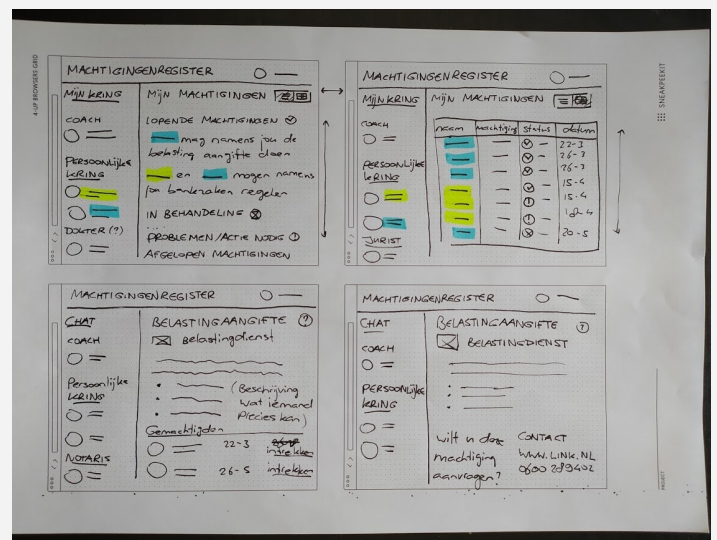 4-UP BROWSERS GRID
MACHTIGINGENREGISTER
MIJN KRING
COACH
PERSOONLIJKE
KRING
DOKTER (?)
MIJN MACHTIGINGEN
LOPENDE MACHTIGINGEN
mag namens jou de
belasting aangifte doen
en mogen namens
jou bankzaken regelen
IN BEHANDELING
...
PROBLEMEN/ACTIE NODIG
AFGELOPEN MACHTIGINGEN
MACHTIGINGENREGISTER
MIJN KRING
COACH
PERSOONLIJKE
KRING
JURIST
MIJN MACHTIGINGEN
naam machtiging status datum
22-3
26-3
26-3
15-4
15-4
18-4
20-5
SNEAKPEEKIT
MACHTIGINGENREGISTER
CHAT
COACH
Persoonlijke
KRING
NOTARIS
BELASTINGAANGIFTE ?
Belastingdienst
(Beschrijving
wat iemand
Precies kan)
Gemachtigden
22-3
intrekken
26-5 intrekken
MACHTIGINGENREGISTER
CHAT
COACH
PERSOONLIJKE
KRING
BELASTINGAANGIFTE ?
BELASTINGDIENST
wilt u deze
machtiging
aanvragen?
CONTACT
WWW.LINK.NL
0600 289402
PROJECT